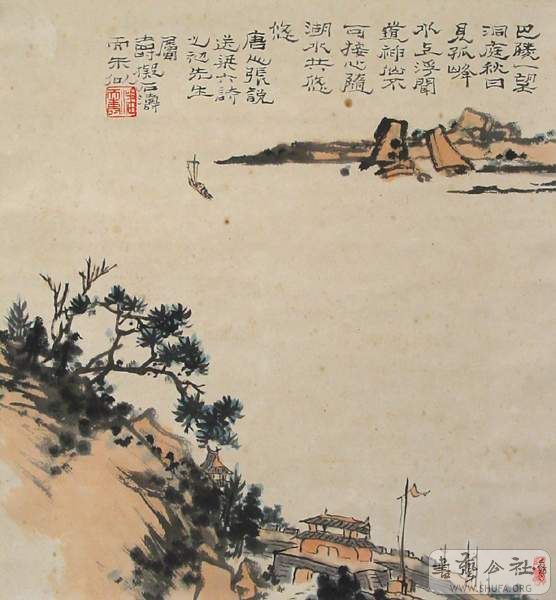 巴陵一望
洞庭秋日
見孤峰
水上浮聞
道神仙不
可接心隨
湖水共悠
悠
唐人張說
送梁六詩
之初先生
屬
壽擬石濤
而未似
書藝公社
WWW.SHUFA.ORG